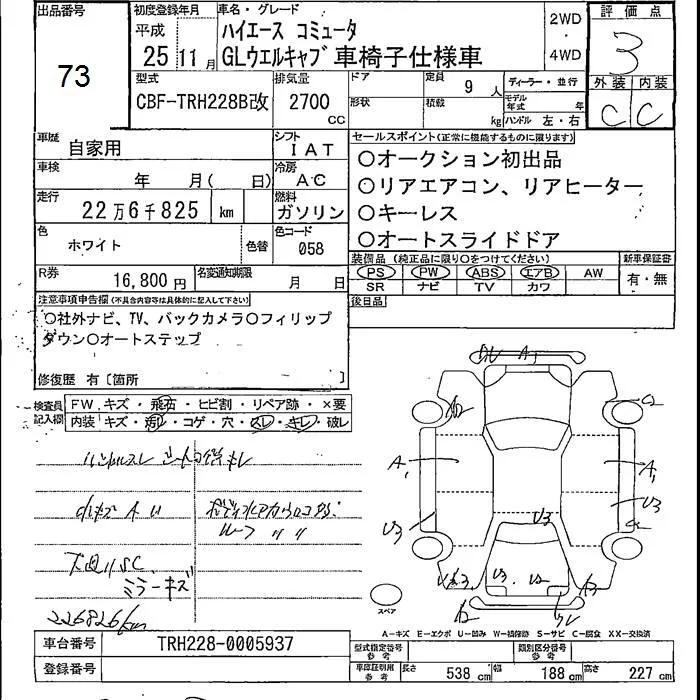 出品番号 初度登録年月 車名・グレード 評価点
73 平成 25 11月 ハイエース コミュータ 2WD ・ 4WD 3
GLウエルキャブ 車椅子仕様車
外装 内装
C C
型式 排気量 ドア 定員 9人 ディーラー・並行
CBF-TRH228B改 2700 CC 形状 積載 kg モデル年式 年
ハンドル 左・右
車歴 自家用 シフト IAT セールスポイント(正常に機能するものに限ります)
車検 年 月( 日) 冷房 AC
○オークション初出品
○リアエアコン、リアヒーター
走行 22万6千825 km 燃料 ガソリン
○キーレス
○オートスライドドア
色 ホワイト 色替 色コード 058
装備品(純正品に限り○をつけてください) 新車保証書
R券 16,800円 名変通知期限 月 日
PS PW ABS エアB AW 有・無
SR ナビ TV カワ
注意事項申告欄(不具合内容等は具体的に記入して下さい) 後日品
○社外ナビ、TV、バックカメラ○フィリップ
ダウン○オートステップ
修復歴 有〔箇所 〕
検査員記入欄 FW キズ・飛石・ヒビ割・リペア跡・×要
内装 キズ・汚レ・コゲ・穴・スレ・キレ・破レ
ハンドルスレ
キレ
A U
ルーフ 〃 〃
下廻りSC
ミラーキズ
226826km
A1
A2
C2
A1
A1
U3
U3
U3
U3. U2
A2
スペア
A-キズ E-エクボ U-凹み W-補修跡 S-サビ C-腐食 XX-交換済
車台番号 TRH228-0005937 型式指定番号 参考 類別区分番号 参考
登録番号 車庫証明用 参考 長さ 538 cm 幅 188 cm 高さ 227 cm